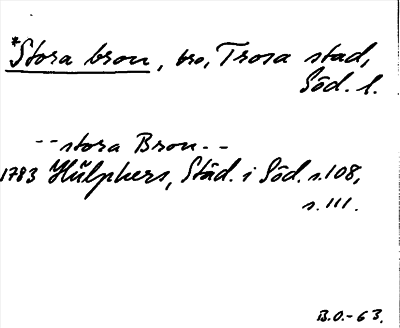 *Stora bron, bro, Trosa stad,
Söd. l.
-- stora Bron --
1783 Hülphers, Städ. i Söd. s.108,
s.111.
B.O.-63.